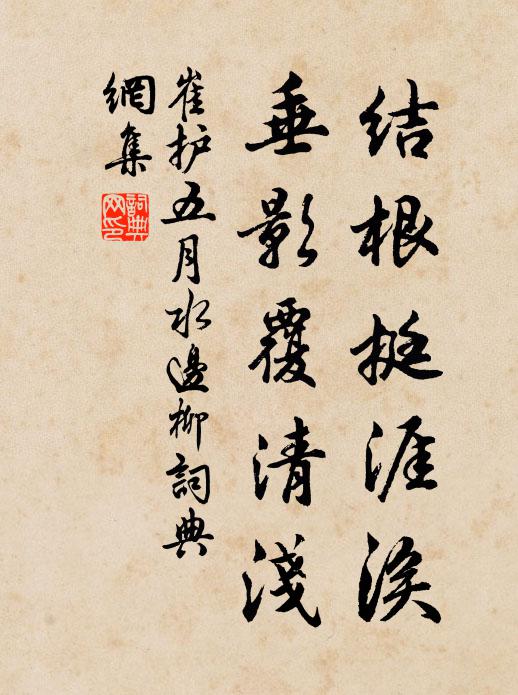 结根挺涯涘
垂影覆清淺
崔护五月水邊柳詞典
網集
詞典
网印